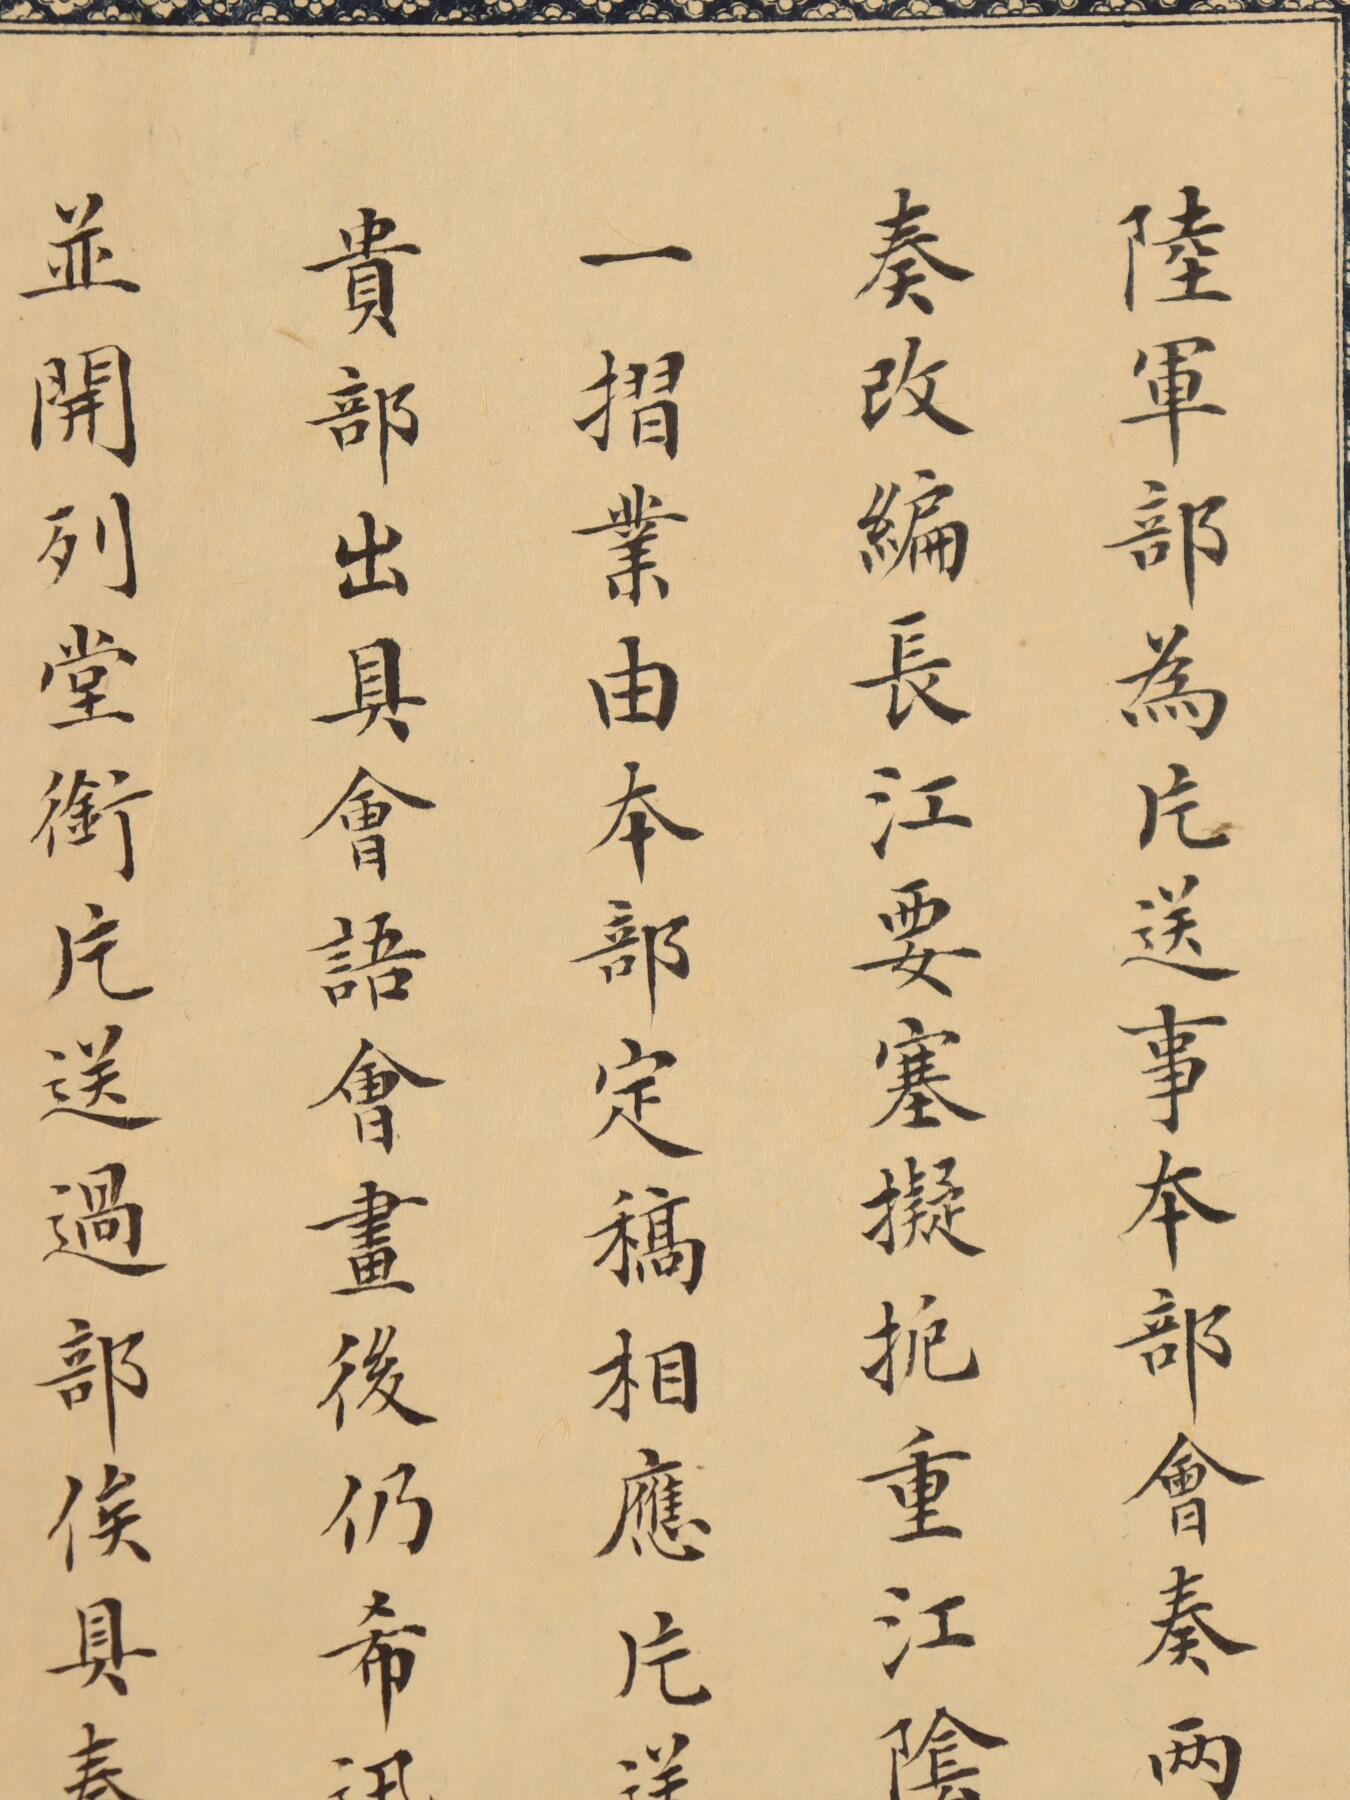 陸軍部為片送事本部會奏两
奏改編長江要塞擬扼重江陰
一摺業由本部定稿相應片送
貴部出具會語會畫後仍希迅
並開列堂銜片送過部俟具奏